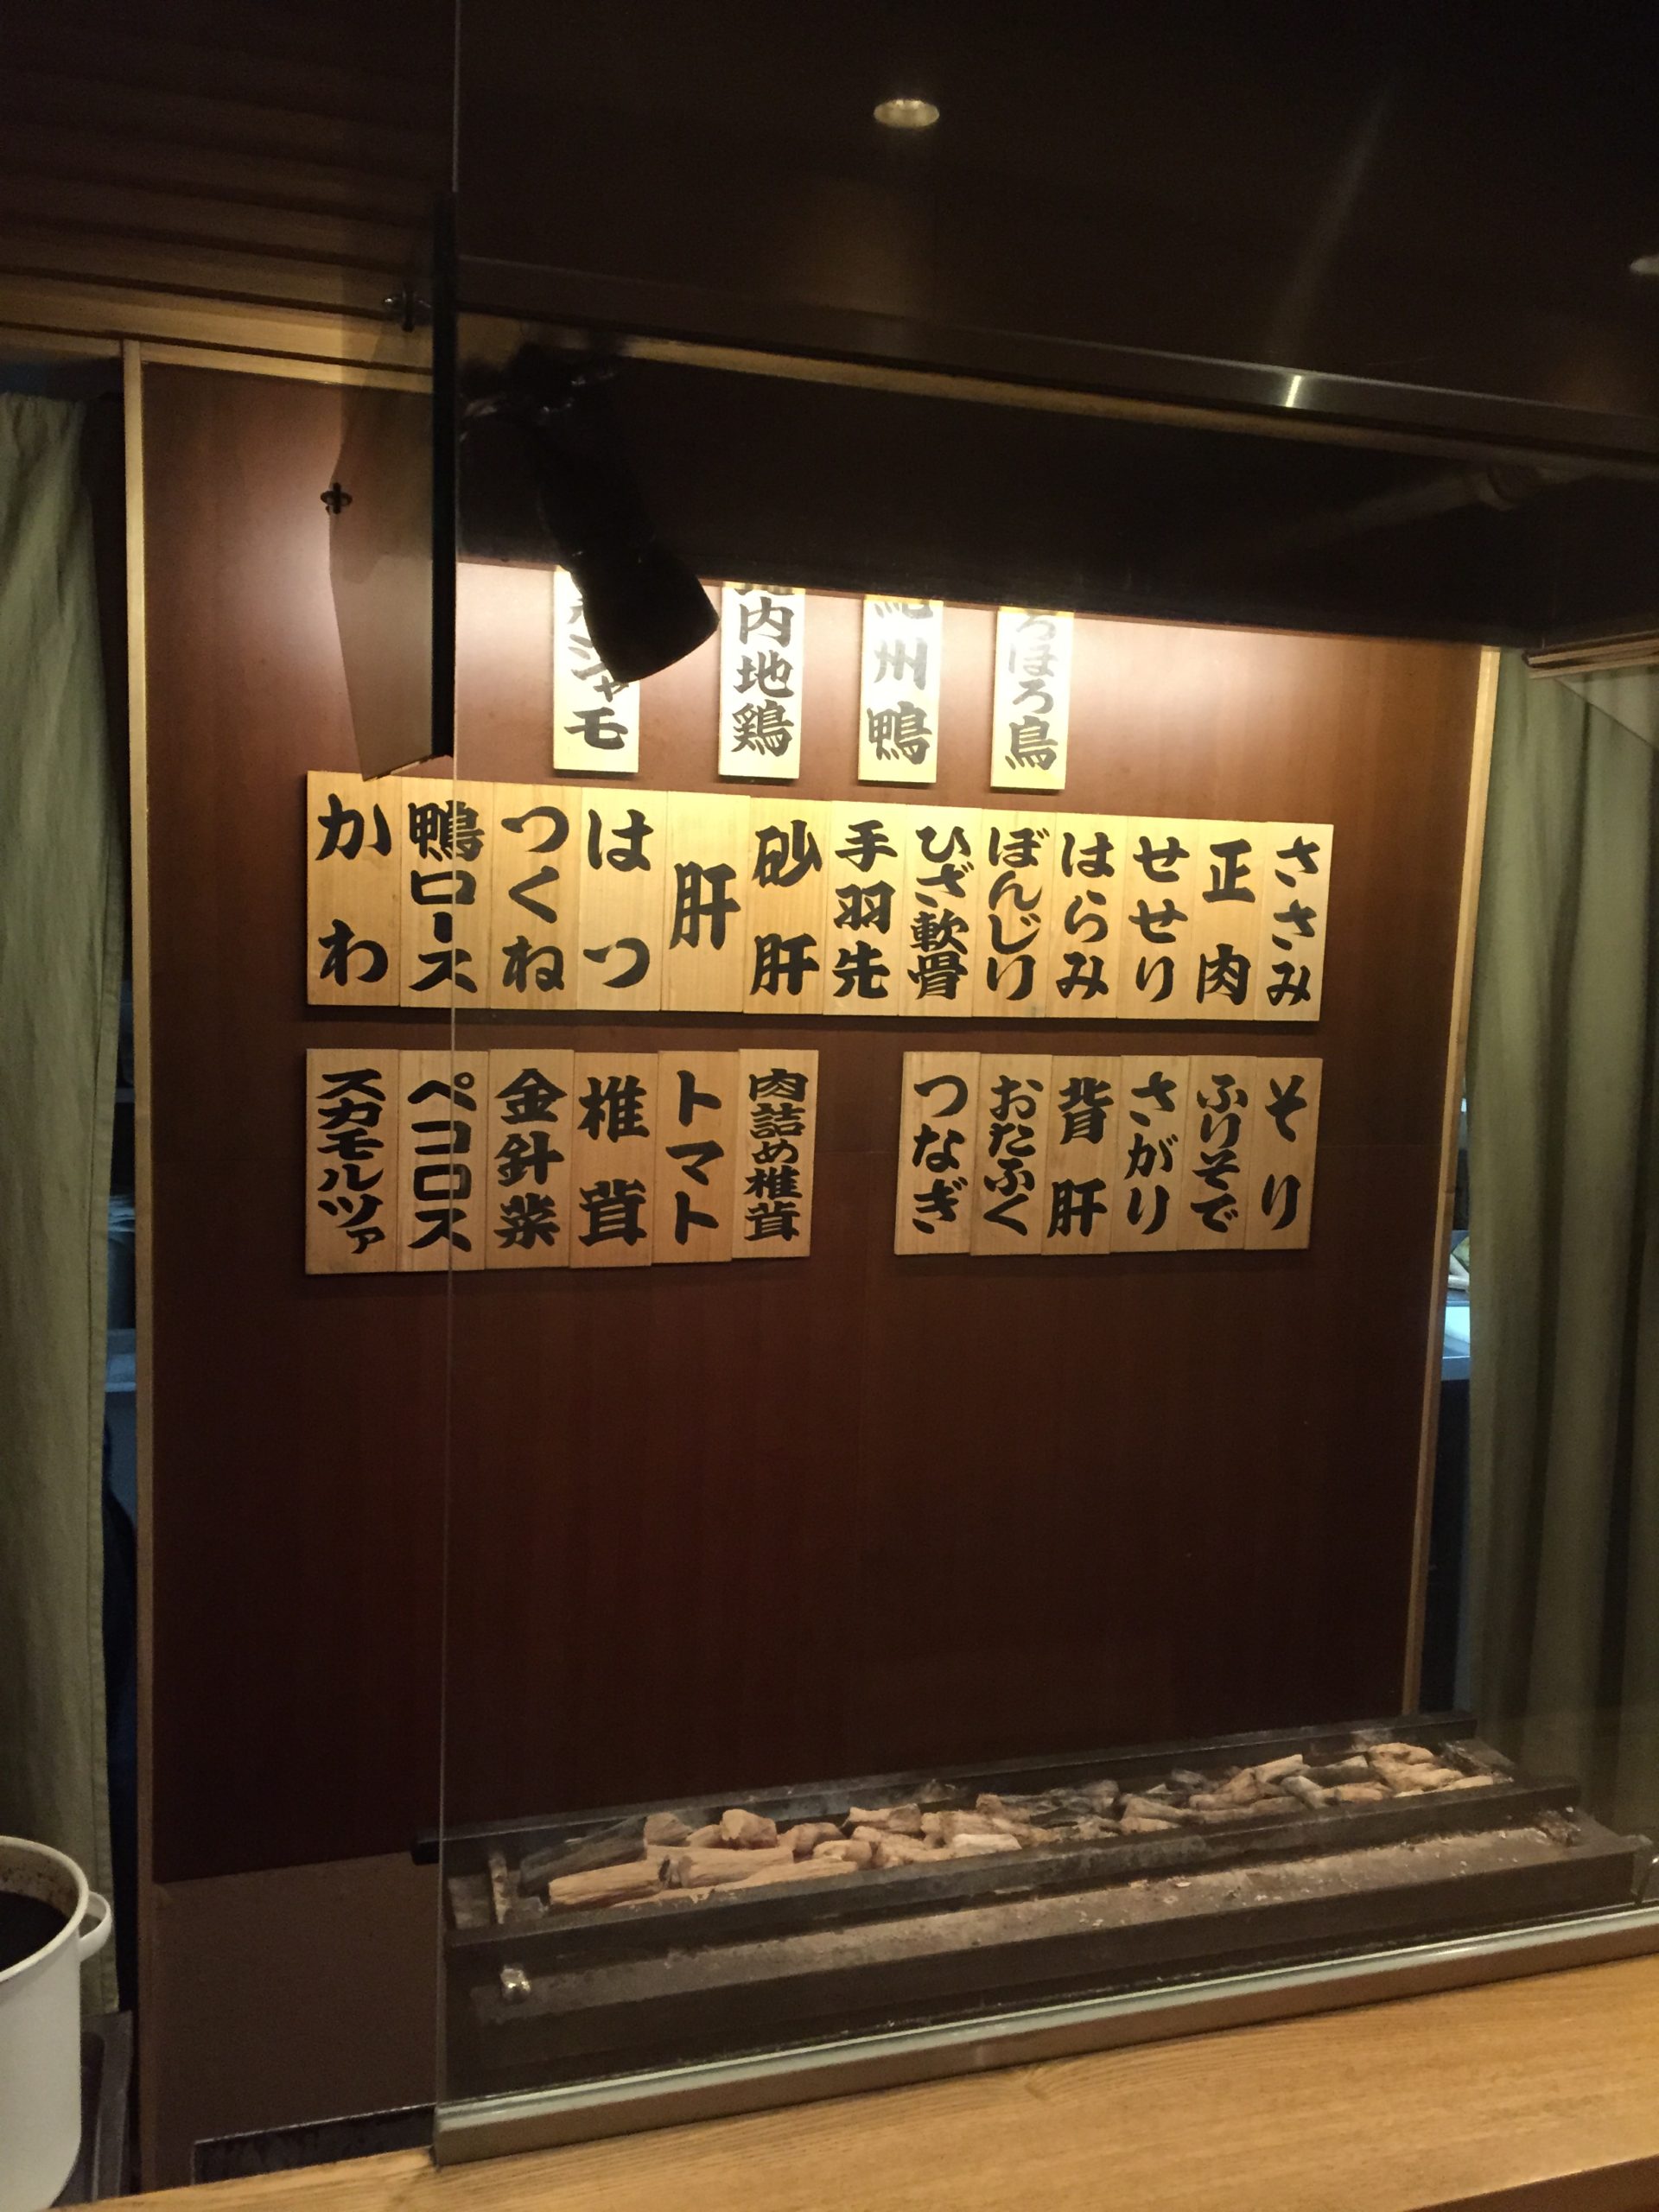 ろほろ鳥
州鴨
内地鶏
シャモ
ささみ
正肉
せせり
はらみ
ぼんじり
ひざ軟骨
手羽先
砂肝
肝
はつ
つくね
鴨ロース
かわ
そり
ふりそで
さがり
背肝
おたふく
つなぎ
肉詰め椎茸
トマト
椎茸
金針菜
ペコロス
スカモルツァ